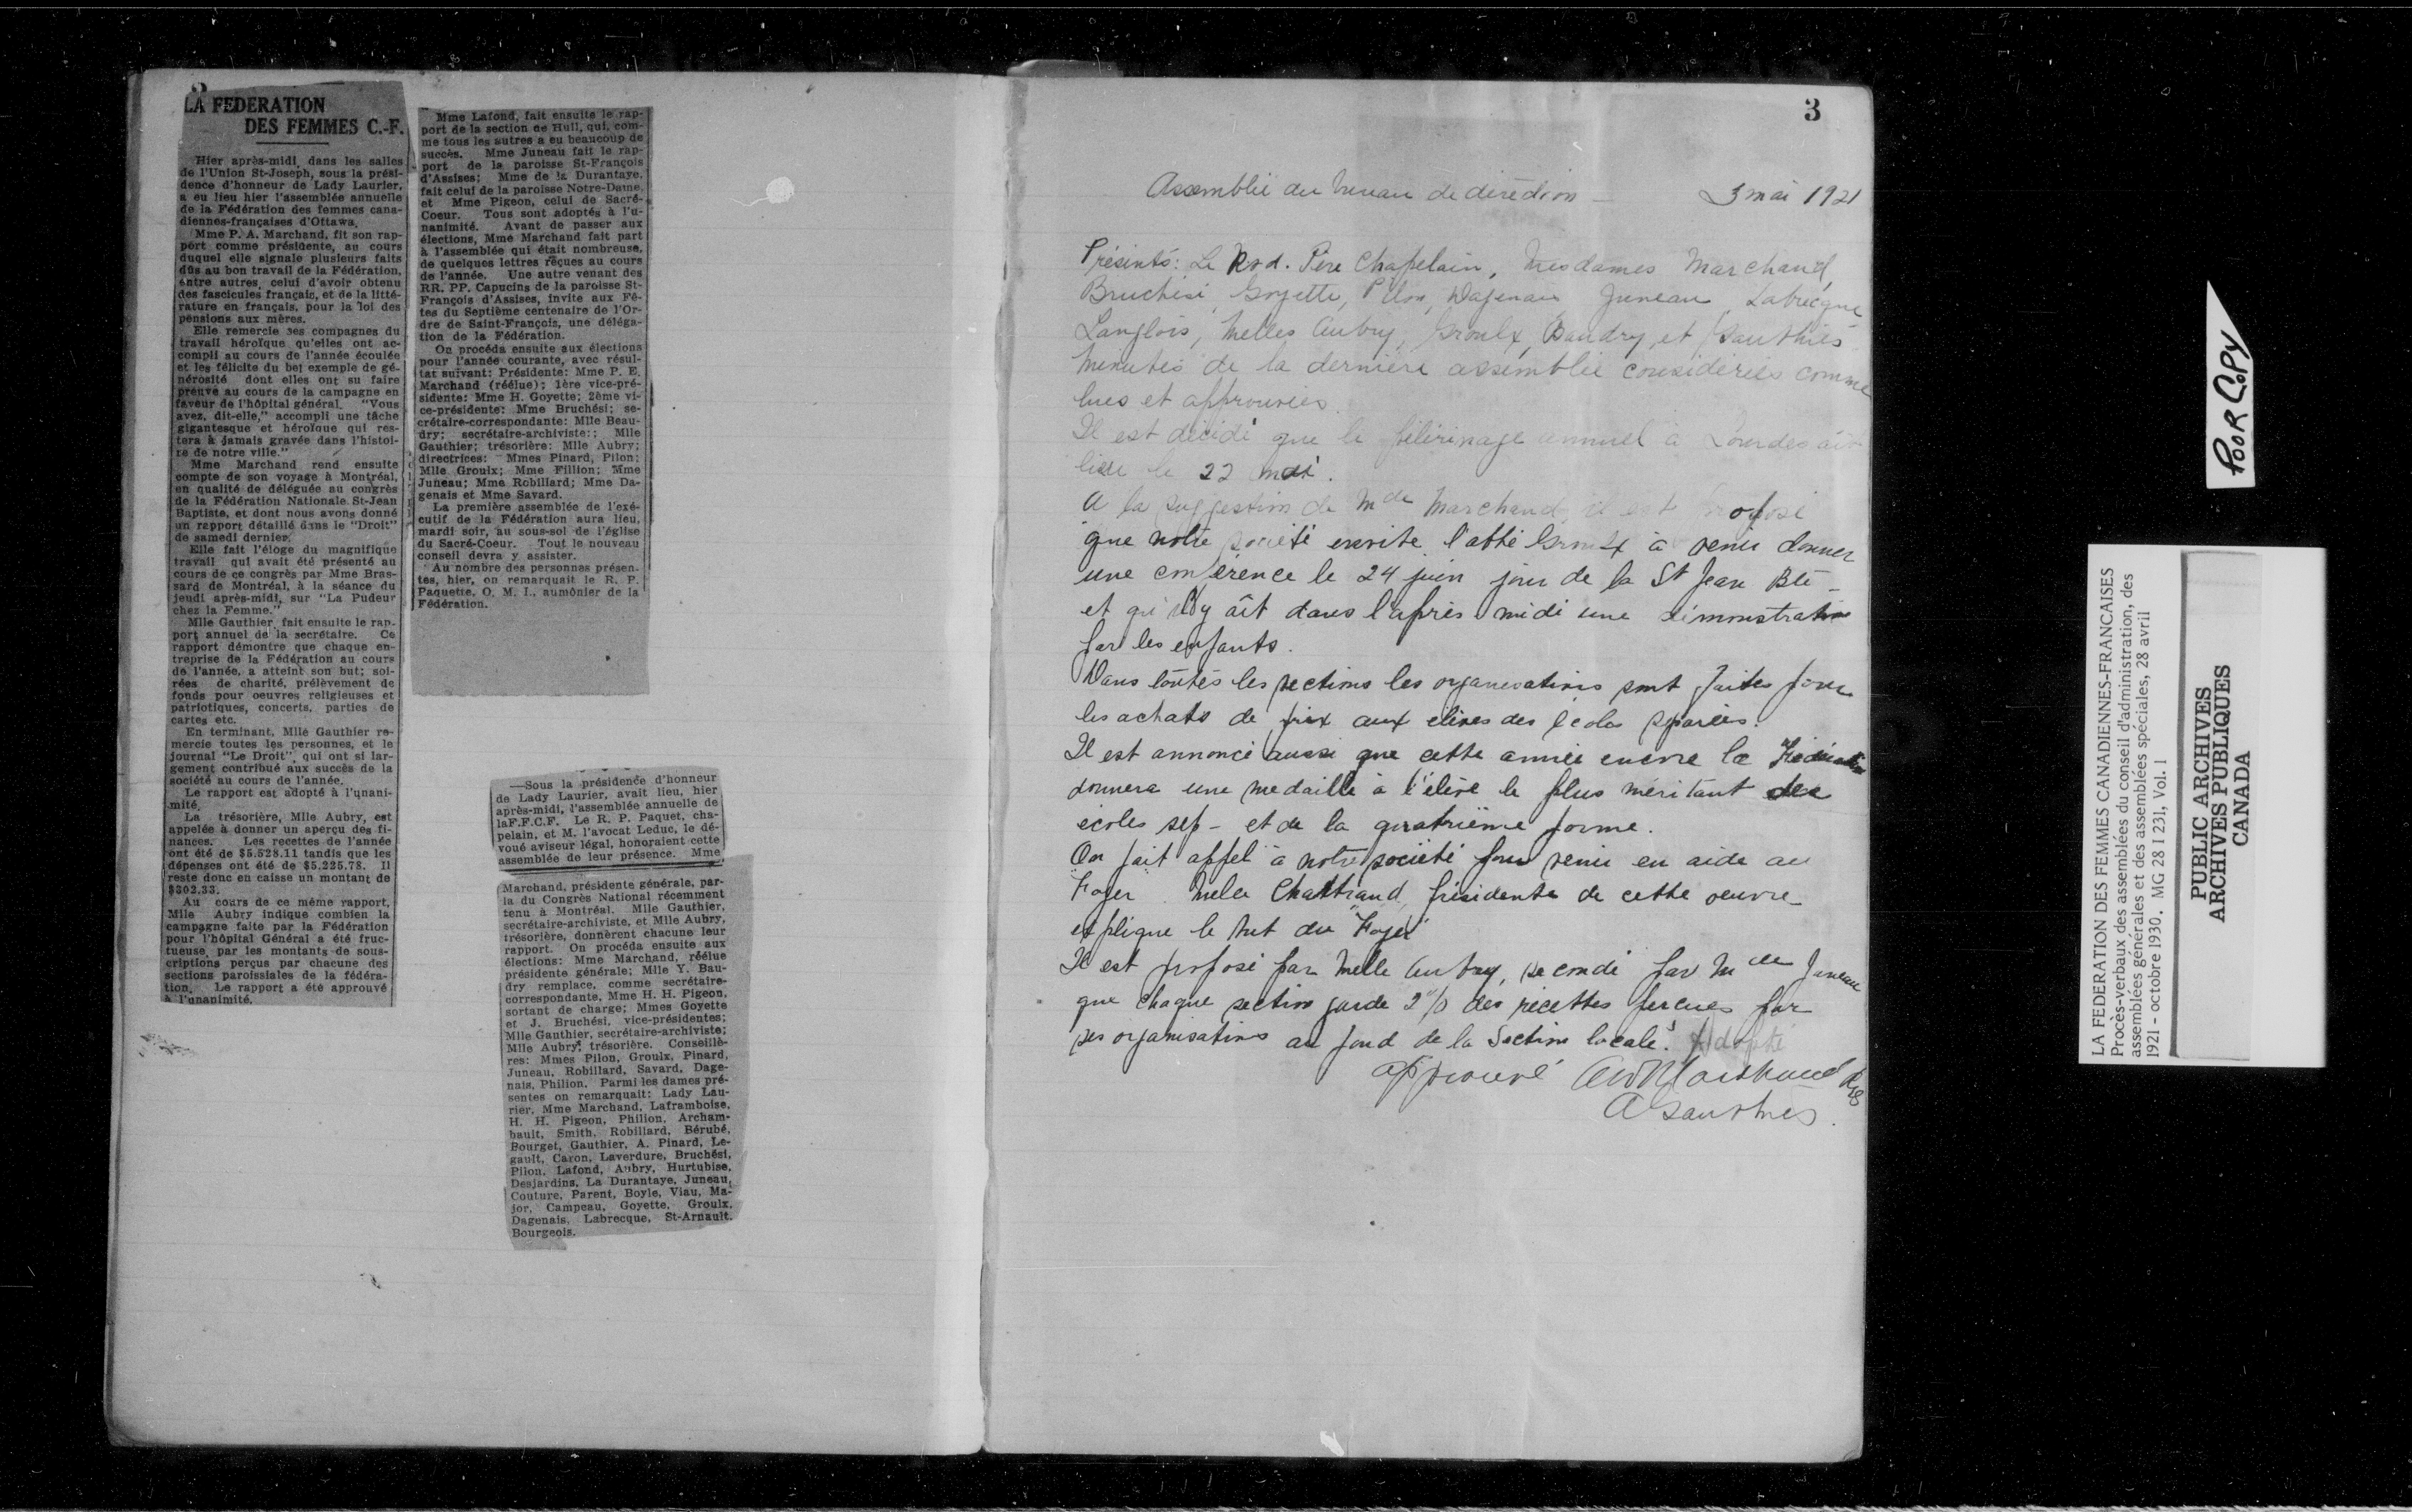 LA FEDERATION
DES FEMMES C.-F.
Hier après-midi, dans les salles
de l'Union St-Joseph, sous la prési-
dence d'honneur de Lady Laurier,
a eu lieu hier l'assemblée annuelle
de la Fédération des femmes cana-
diennes-françaises d'Ottawa.
Mme P. A. Marchand, fit son rap-
port comme présidente, au cours
duquel elle signale plusieurs faits
dûs au bon travail de la Fédération,
entre autres, celui d'avoir obtenu
des fascicules français, et de la litté-
rature en français, pour la loi des
pensions aux mères.
Elle remercie ses compagnes du
travail héroïque qu'elles ont ac-
compli au cours de l'année écoulée
et les félicite du bel exemple de gé-
nérosité dont elles ont su faire
preuve au cours de la campagne en
faveur de l'hôpital général. "Vous
avez, dit-elle," accompli une tâche
gigantesque et héroïque qui res-
tera à jamais gravée dans l'histoi-
re de notre ville."
Mme Marchand rend ensuite
compte de son voyage à Montréal,
en qualité de déléguée au congrès
de la Fédération Nationale St-Jean
Baptiste, et dont nous avons donné
un rapport détaillé dans le "Droit"
de samedi dernier.
Elle fait l'éloge du magnifique
travail qui avait été présenté au
cours de ce congrès par Mme Bras-
sard de Montréal, à la séance du
jeudi après-midi, sur "La Pudeur
chez la Femme."
Mlle Gauthier fait ensuite le rap-
port annuel de la secrétaire. Ce
rapport démontre que chaque en-
treprise de la Fédération au cours
de l'année, a atteint son but; soi-
rées de charité, prélèvement de
fonds pour oeuvres religieuses et
patriotiques, concerts, parties de
cartes etc.
En terminant, Mlle Gauthier re-
mercie toutes les personnes, et le
journal "Le Droit", qui ont si lar-
gement contribué aux succès de la
société au cours de l'année.
Le rapport est adopté à l'unani-
mité.
La trésorière, Mlle Aubry, est
appelée à donner un aperçu des fi-
nances. Les recettes de l'année
ont été de $5.528.11 tandis que les
dépenses ont été de $5.225.78. Il
reste donc en caisse un montant de
$302.33.
Au cours de ce même rapport,
Mlle Aubry indique combien la
campagne faite par la Fédération
pour l'hôpital Général a été fruc-
tueuse, par les montants de sous-
criptions perçus par chacune des
sections paroissiales de la fédéra-
tion. Le rapport a été approuvé
à l'unanimité.
Mme Lafond, fait ensuite le rap-
port de la section de Hull, qui, com-
me tous les autres a eu beaucoup de
succès. Mme Juneau fait le rap-
port de la paroisse St-François
d'Assises; Mme de la Durantaye,
fait celui de la paroisse Notre-Dame,
et Mme Pigeon, celui de Sacré-
Coeur. Tous sont adoptés à l'u-
nanimité. Avant de passer aux
élections, Mme Marchand fait part
à l'assemblée qui était nombreuse,
de quelques lettres reçues au cours
de l'année. Une autre venant des
RR. PP. Capucins de la paroisse St-
François d'Assises, invite aux Fê-
tes du Septième centenaire de l'Or-
dre de Saint-François, une déléga-
tion de la Fédération.
On procéda ensuite aux élections
pour l'année courante, avec résul-
tat suivant: Présidente: Mme P. E.
Marchand (réélue); 1ère vice-pré-
sidente: Mme H. Goyette; 2ème vi-
ce-présidente: Mme Bruchési; se-
crétaire-correspondante: Mlle Beau-
dry; secrétaire-archiviste:; Mlle
Gauthier; trésorière: Mlle Aubry;
directrices: Mmes Pinard, Pilon;
Mlle Groulx; Mme Fillion; Mme
Juneau; Mme Robillard; Mme Da-
genais et Mme Savard.
La première assemblée de l'exé-
cutif de la Fédération aura lieu,
mardi soir, au sous-sol de l'église
du Sacré-Coeur. Tout le nouveau
conseil devra y assister.
Au nombre des personnes présen-
tes, hier, on remarquait le R. P.
Paquette, O. M. I., aumônier de la
Fédération.
—Sous la présidence d'honneur
de Lady Laurier, avait lieu, hier
après-midi, l'assemblée annuelle de
laF.F.C.F. Le R. P. Paquet, cha-
pelain, et M. l'avocat Leduc, le dé-
voué aviseur légal, honoraient cette
assemblée de leur présence. Mme
Marchand, présidente générale, par-
la du Congrès National récemment
tenu à Montréal. Mlle Gauthier,
secrétaire-archiviste, et Mlle Aubry,
trésorière, donnèrent chacune leur
rapport. On procéda ensuite aux
élections: Mme Marchand, réélue
présidente générale; Mlle Y. Bau-
dry remplace, comme secrétaire-
correspondante, Mme H. H. Pigeon,
sortant de charge; Mmes Goyette
et J. Bruchési, vice-présidentes;
Mlle Gauthier, secrétaire-archiviste;
Mlle Aubry, trésorière. Conseillè-
res: Mmes Pilon, Groulx, Pinard,
Juneau, Robillard, Savard, Dage-
nais, Philion. Parmi les dames pré-
sentes on remarquait: Lady Lau-
rier, Mme Marchand, Laframboise,
H. H. Pigeon, Philion, Archam-
bault, Smith, Robillard, Bérubé,
Bourget, Gauthier, A. Pinard, Le-
gault, Caron, Laverdure, Bruchési,
Pilon, Lafond, Aubry, Hurtubise,
Desjardins, La Durantaye, Juneau,
Couture, Parent, Boyle, Viau, Ma-
jor, Campeau, Goyette, Groulx,
Dagenais, Labrecque, St-Arnault,
Bourgeois.
3
Assemblée du bureau de direction — 3 mai 1921
Présents: Le Rvd. Père Chapelain, Mesdames Marchand,
Bruchési, Goyette, Pilon, Dagenais Juneau, Labrecque
Langlois, Melles Aubry, Groulx, Baudry, et Gauthier
Minutes de la dernière assemblée considérées comme
lues et approuvées.
Il est décidé que le pélérinage annuel à Lourdes ait
lieu le 22 mai.
A la suggestion de Mde Marchand, il est proposé
que notre société invite l'abbé Groulx à venir donner
une conférence le 24 juin jour de la St Jean Bte -
et qu'il y ait dans l'après midi une démonstration
par les enfants.
Dans toutes les sections les organisations sont faites pour
les achats de prix aux élèves des écoles séparées.
Il est annoncé aussi que cette année encore la Fédération
donnera une médaille à l'élève le plus méritant des
écoles sep - et de la quatrième forme.
On fait appel à notre société pour venir en aide au
"Foyer". Melle Chartrand, présidente de cette oeuvre
explique le but du "Foyer"
Il est proposé par Melle Aubry, secondé par Mde Juneau
que chaque section garde 2% des recettes perçues par
ses organisations au fond de la Section locale. Adopté
approuvé Marchand Pres
A Gauthier.
POOR COPY
LA FEDERATION DES FEMMES CANADIENNES-FRANCAISES
Procès-verbaux des assemblées du conseil d'administration, des
assemblées générales et des assemblées spéciales, 28 avril
1921 - octobre 1930. MG 28 I 231, Vol. 1
PUBLIC ARCHIVES
ARCHIVES PUBLIQUES
CANADA